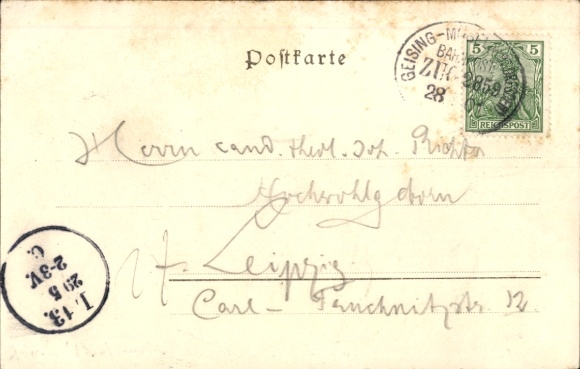 Postkarte
GEISING-MÜGELN
BAHNPOST
ZUG 2859
28
5 5
REICHSPOST
Herrn cand. theol. Joh. Richter
Hochwohlgeborn
Leipzig
Carl-Tauchnitzstr 12.
I. 13.
29 5
2-3V.
C.